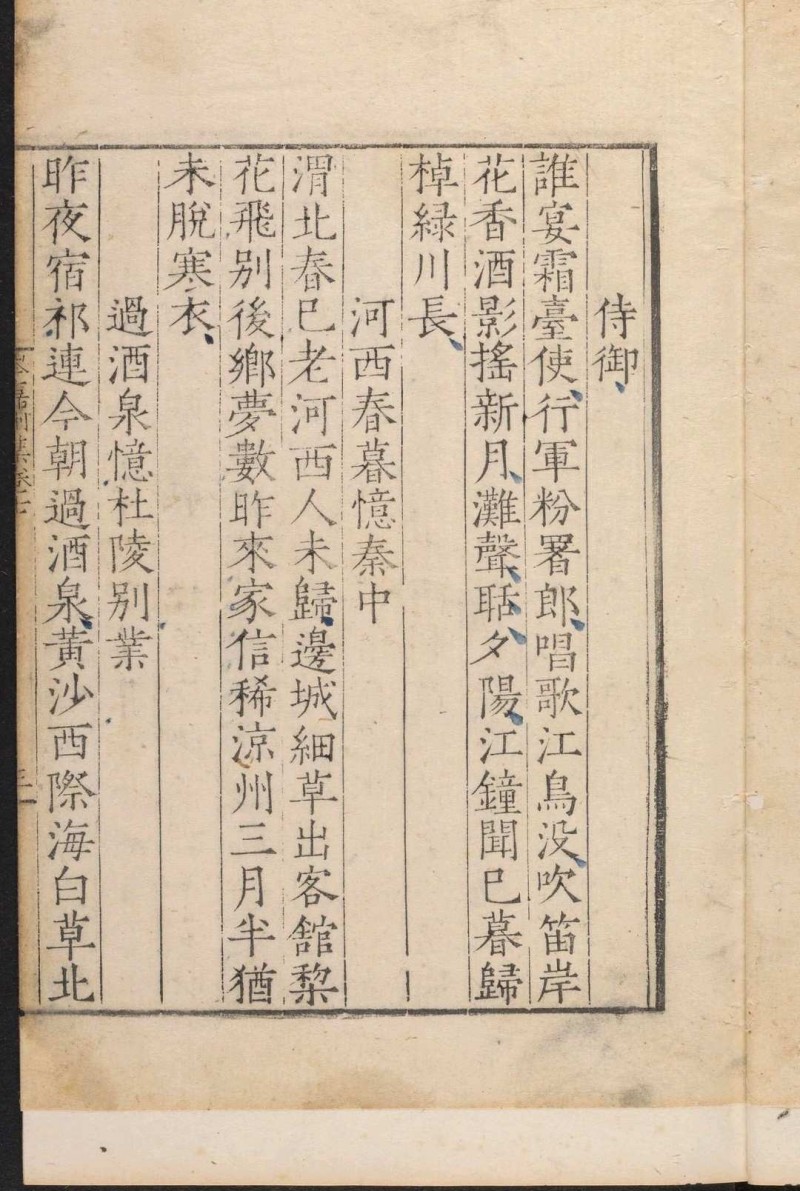 侍御
誰宴霜臺使行軍粉署郎唱歌江鳥没吹笛岸
花香酒影搖新月灘聲聒夕陽江鐘聞已暮歸
棹緑川長
河西春暮憶秦中
渭北春已老河西人未歸邊城細草出客館梨
花飛别後鄉夢數昨來家信稀涼州三月半猶
未脫寒衣
過酒泉憶杜陵别業
昨夜宿祁連今朝過酒泉黃沙西際海白草北